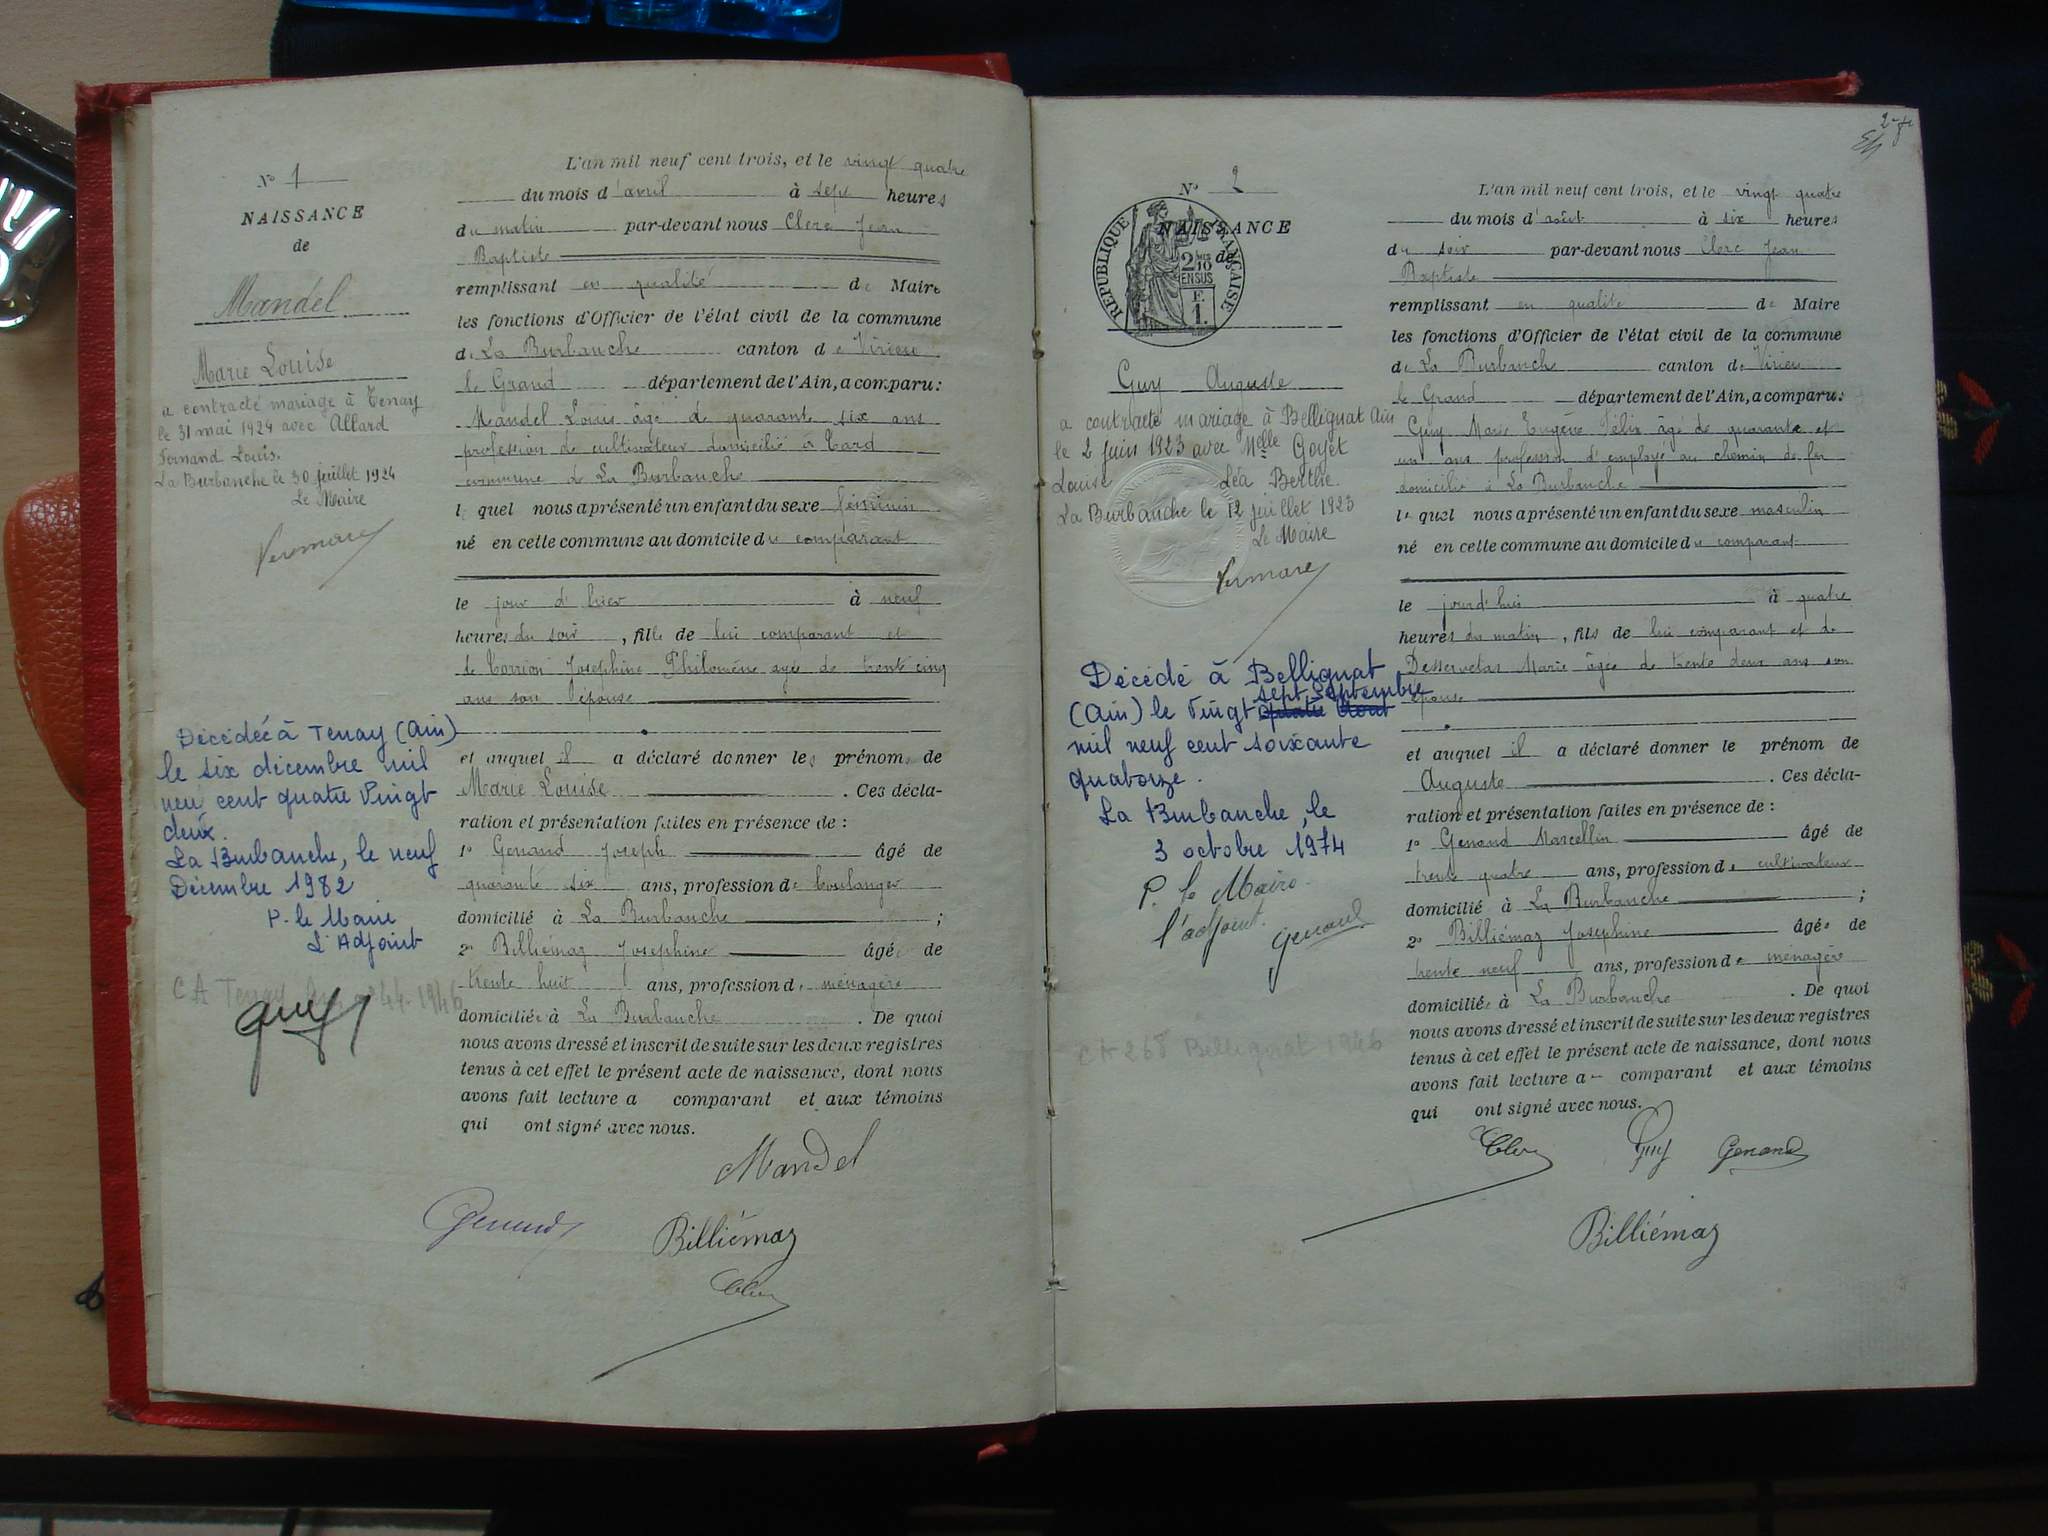 N° 1
NAISSANCE
de
Mandel
Marie Louise
a contracté mariage à Tenay
le 31 mai 1924 avec Allard
Fernand Louis.
La Burbanche le 30 juillet 1924
Le Maire
Vermare
Décédée à Tenay (Ain)
le six décembre mil
neuf cent quatre Vingt
deux.
La Burbanche, le neuf
Décembre 1982
P. le Maire
L'Adjoint
CA Tenay 1946
L'an mil neuf cent trois, et le vingt quatre
du mois d'avril à sept heures
du matin par-devant nous Clerc Jean
Baptiste
remplissant en qualité de Maire
les fonctions d'Officier de l'état civil de la commune
de La Burbanche canton de Virieu
le Grand département de l'Ain, a comparu:
Mandel Louis âgé de quarante six ans
profession de cultivateur domicilié à Tard
commune de La Burbanche
lequel nous a présenté un enfant du sexe féminin
né en cette commune au domicile du comparant
le jour d'hier à neuf
heures du soir, fille de lui comparant et
de Josephine Philomène agée de trente cinq
ans son épouse
et auquel il a déclaré donner les prénoms de
Marie Louise . Ces décla-
ration et présentation faites en présence de :
1° Genand Joseph âgé de
quarante six ans, profession de boulanger
domicilié à La Burbanche ;
2° Billiémaz Josephine âgée de
trente huit ans, profession de ménagère
domiciliée à La Burbanche . De quoi
nous avons dressé et inscrit de suite sur les deux registres
tenus à cet effet le présent acte de naissance, dont nous
avons fait lecture a comparant et aux témoins
qui ont signé avec nous.
Mandel
Genand
Billiémaz
Clerc
N° 2
NAISSANCE
de
RÉPUBLIQUE FRANÇAISE
2/10 EN SUS
F. 1.
Guy Auguste
a contracté mariage à Bellignat Ain
le 2 juin 1923 avec Melle Goyet
Louise Léa Berthe.
La Burbanche le 12 juillet 1923
Le Maire
Vermare
Décédé à Bellignat
sept Septembre
(Ain) le Vingt quatre Aout
mil neuf cent soixante
quatorze.
La Burbanche, le
3 octobre 1974
P. le Maire.
l'adjoint. Genand
CA 268 Bellignat 1946
L'an mil neuf cent trois, et le vingt quatre
du mois d'août à six heures
du soir par-devant nous Clerc Jean
Baptiste
remplissant en qualité de Maire
les fonctions d'Officier de l'état civil de la commune
de La Burbanche canton de Virieu
le Grand département de l'Ain, a comparu:
Guy Marie Eugène Félix âgé de quarante et
un ans profession d'employé au chemin de fer
domicilié à La Burbanche
lequel nous a présenté un enfant du sexe masculin
né en cette commune au domicile du comparant
le jourd'hui à quatre
heures du matin, fils de lui comparant et de
Desservetaz Marie âgée de trente deux ans son
épouse
et auquel il a déclaré donner le prénom de
Auguste . Ces décla-
ration et présentation faites en présence de :
1° Genand Marcellin âgé de
trente quatre ans, profession de cultivateur
domicilié à La Burbanche ;
2° Billiémaz Josephine âgée de
trente neuf ans, profession de ménagère
domiciliée à La Burbanche . De quoi
nous avons dressé et inscrit de suite sur les deux registres
tenus à cet effet le présent acte de naissance, dont nous
avons fait lecture a comparant et aux témoins
qui ont signé avec nous.
Clerc Guy Genand
Billiémaz